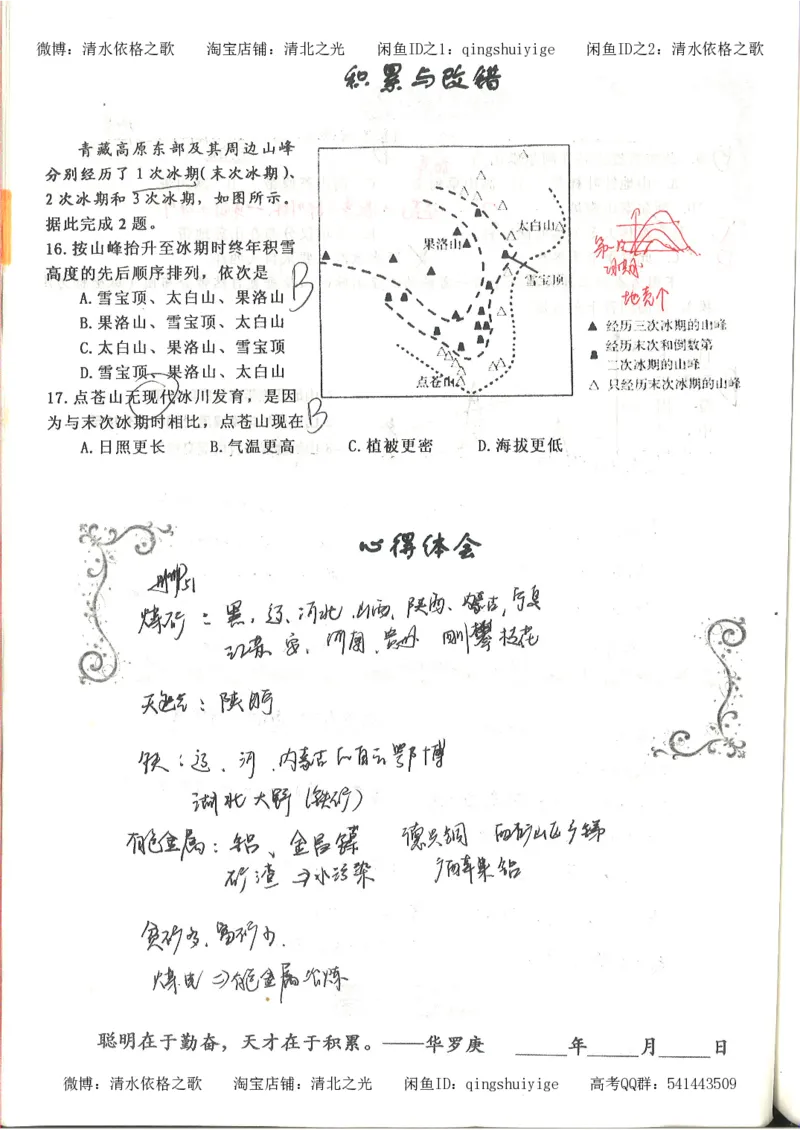 微博：清水依格之歌 淘宝店铺：清北之光 闲鱼ID之1：qingshuiyige 闲鱼ID之2：清水依格之歌
积累与改错
青藏高原东部及其周边山峰
分别经历了1次冰期(末次冰期)、
2次冰期和3次冰期，如图所示。
据此完成2题。
16.按山峰抬升至冰期时终年积雪
高度的先后顺序排列，依次是 B
A.雪宝顶、太白山、果洛山
B.果洛山、雪宝顶、太白山
C.太白山、果洛山、雪宝顶
D.雪宝顶、果洛山、太白山
17.点苍山无现代冰川发育，是因
为与末次冰期时相比，点苍山现在 B
A.日照更长 B.气温更高 C.植被更密 D.海拔更低
太白山
果洛山
雪宝顶
点苍山
第一次
冰期
地壳个
▲ 经历三次冰期的山峰
经历末次和倒数第
二次冰期的山峰
△ 只经历末次冰期的山峰
心得体会
煤矿：黑，辽、河北、山西、陕西、内蒙古，宁夏
江苏 安、河南、贵州 攀枝花
天然气：陕
铁：辽、河、内蒙古 白云鄂博
湖北大野（铁矿）
有色金属：铝、金昌镍 德兴铜 锑
矿渣⇒水污染 铝
贫矿多，富矿少．
煤电⇒有色金属冶炼
聪明在于勤奋，天才在于积累。——华罗庚 _____年_____月_____日
微博：清水依格之歌 淘宝店铺：清北之光 闲鱼ID：qingshuiyige 高考QQ群：541443509